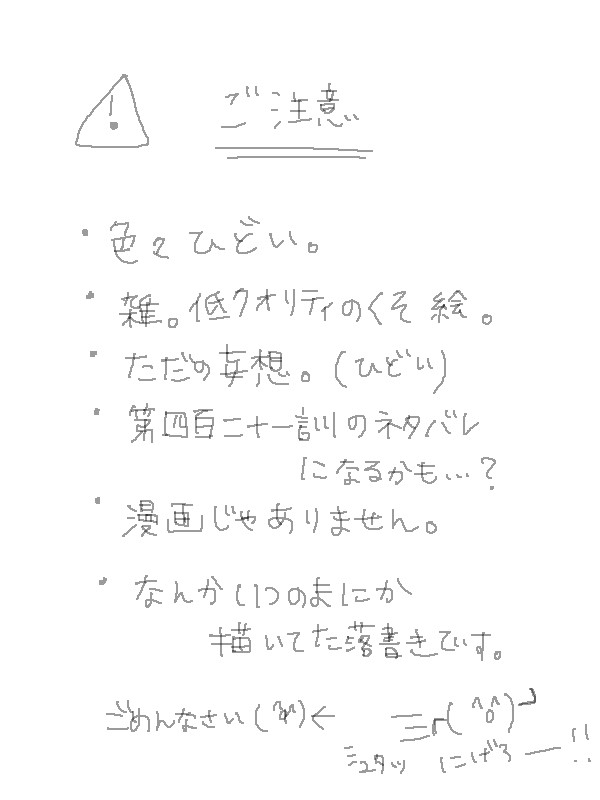 ! ご注意
・色々ひどい。
・雑。低クオリティのくそ絵。
・ただの妄想。(ひどい)
・第四百二十一訓のネタバレ
になるかも…?
・漫画じゃありません。
・なんかいつのまにか
描いてた落書きです。
ごめんなさい(^q^)← 三┌(^o^)┘
ミュタッ にげろー!!